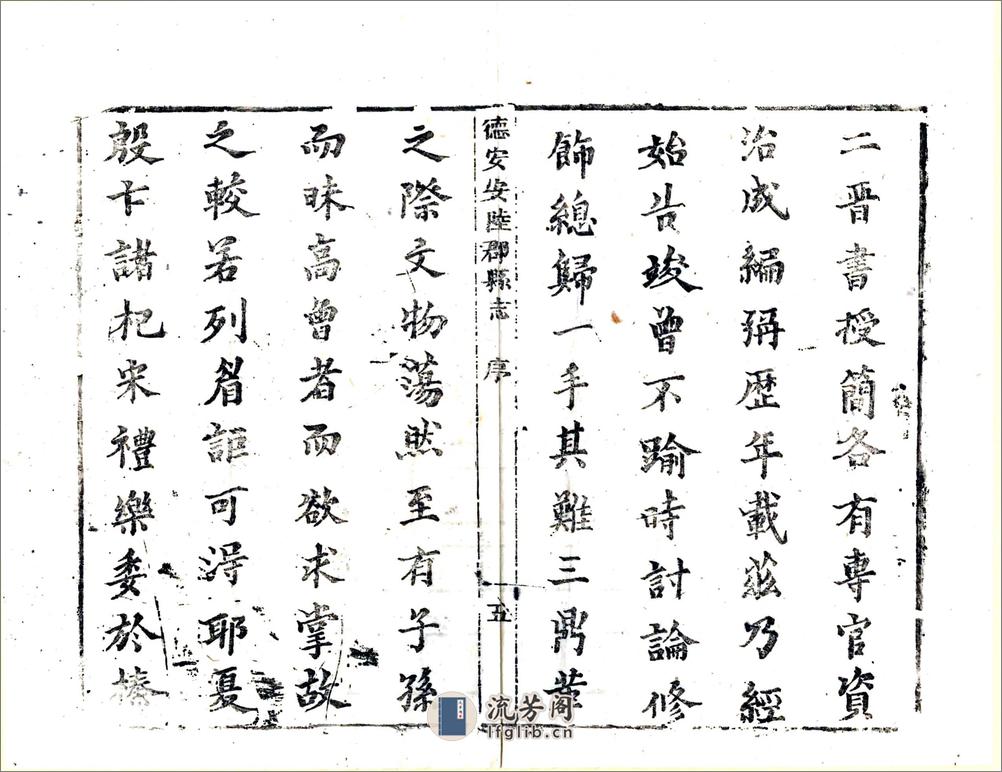 二晋書授簡各有專官資
洽成編殫歴年載茲乃經
始告竣曾不踰時計論修
飾總歸一手其難三鼎革
德安安陸郡縣志 序 五
之際文物蕩然至有子孫
而昧高曾者而欲求掌故
之較若列眉詎可淂耶夏
殷卞諸杞宋禮樂委於榛
流芳阁
lfglib.cn